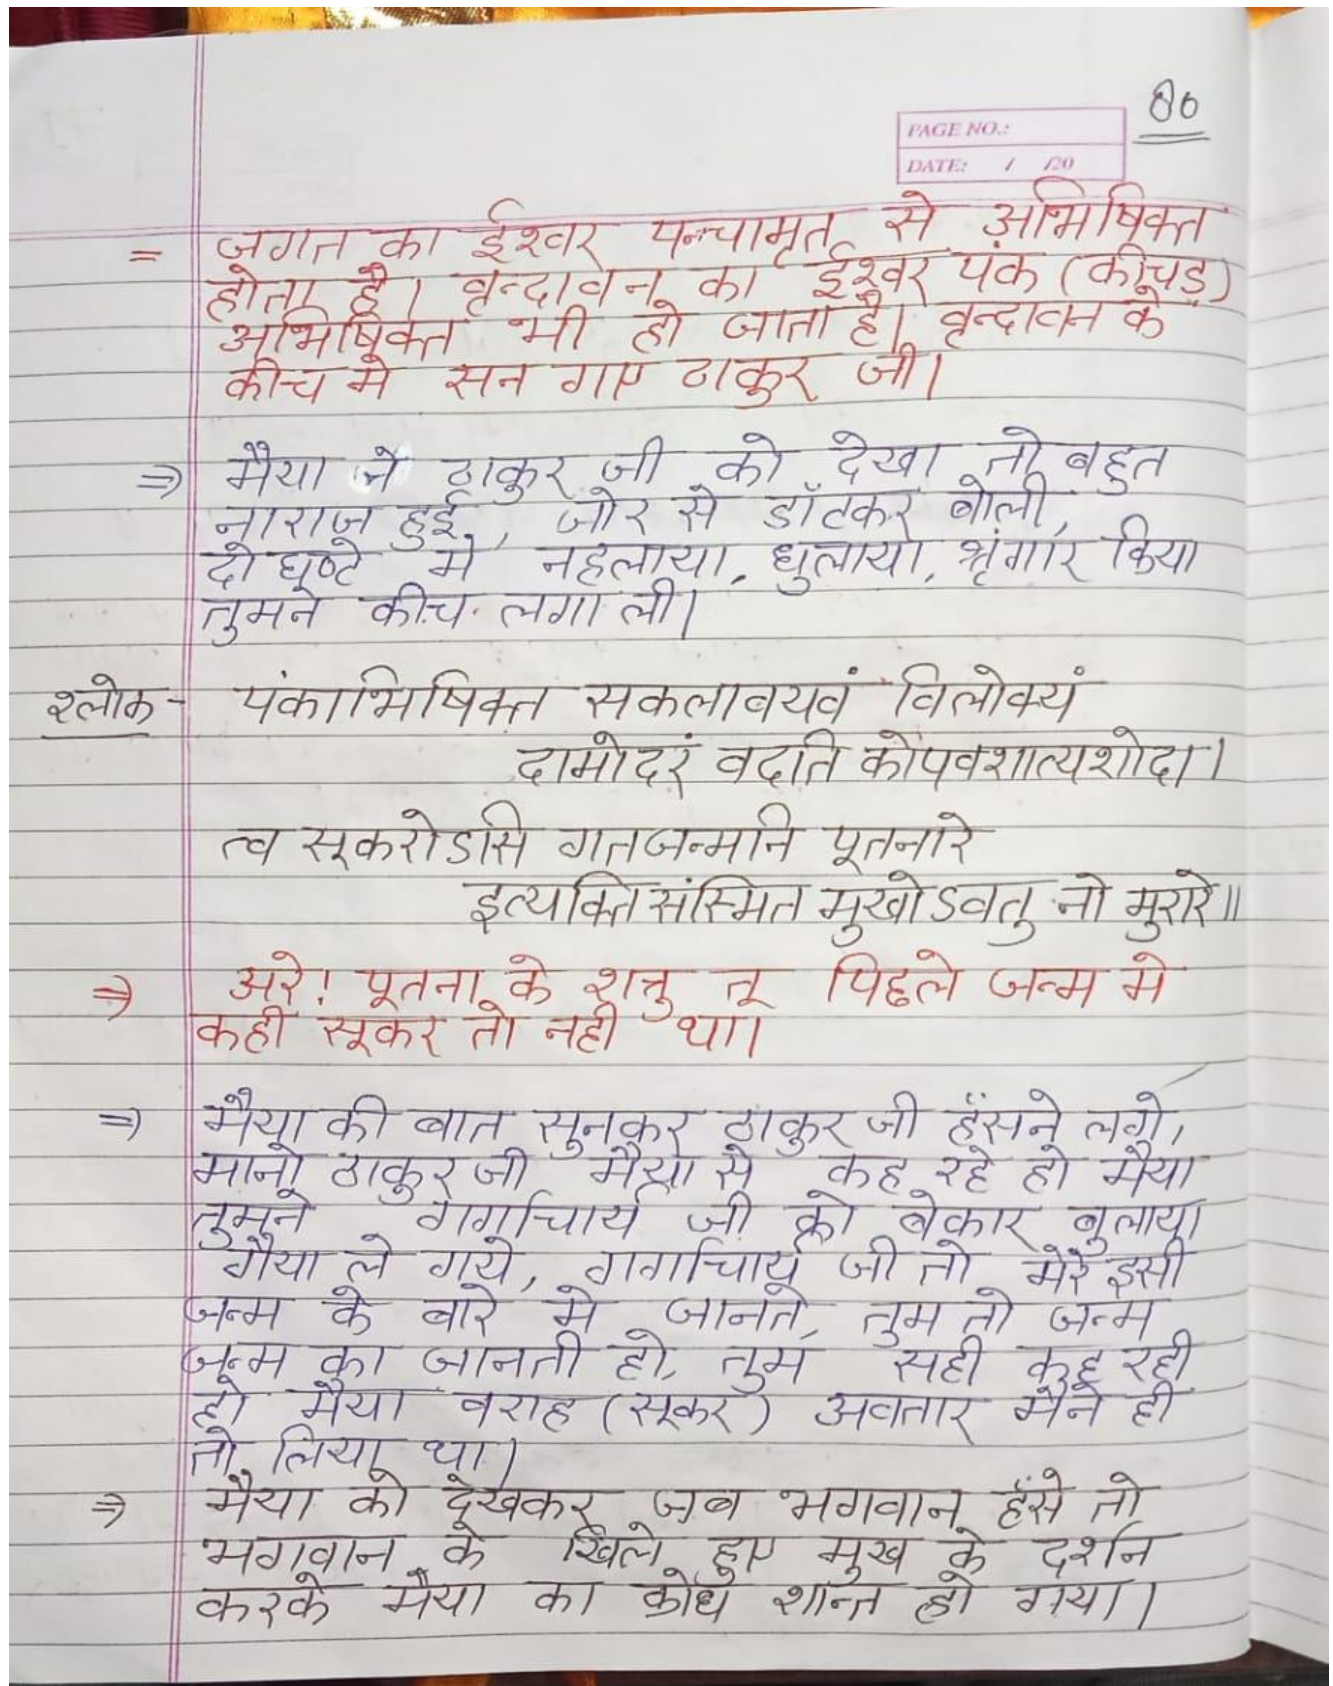 80
PAGE NO.:
DATE: / /20
= जगत का ईश्वर पन्चामृत से अभिषिक्त
होता है। वृन्दावन का ईश्वर पंक (कीचड़)
अभिषिक्त भी हो जाता है। वृन्दावन के
कीच मे सन गए ठाकुर जी।
⇒ मैया ने ठाकुर जी को देखा तो बहुत
नाराज हुई, जोर से डॉटकर बोली,
दो घण्टे मे नहलाया, धुलाया, श्रृंगार किया
तुमने कीच लगा ली।
श्लोक - पंकाभिषिक्त सकलावयवं विलोक्यं
दामोदरं वदति कोपवशात्यशोदा।
त्व सूकरोऽसि गतजन्मनि पूतनारे
इत्यक्ति संस्मित मुखोऽवतु नो मुरारे॥
⇒ अरे! पूतना के शत्रु तू पिछले जन्म मे
कही सूकर तो नही था।
⇒ मैया की बात सुनकर ठाकुर जी हँसने लगे,
मानो ठाकुर जी मैया से कह रहे हो मैया
तुमने गर्गाचार्य जी को बेकार बुलाया
गैया ले गये, गर्गाचार्य जी तो मेरे इसी
जन्म के बारे मे जानते, तुम तो जन्म
जन्म का जानती हो, तुम सही कह रही
हो मैया वराह (सूकर) अवतार मैने ही
तो लिया था।
⇒ मैया को देखकर जब भगवान हँसे तो
भगवान के खिले हुए मुख के दर्शन
करके मैया का क्रोध शान्त हो गया।